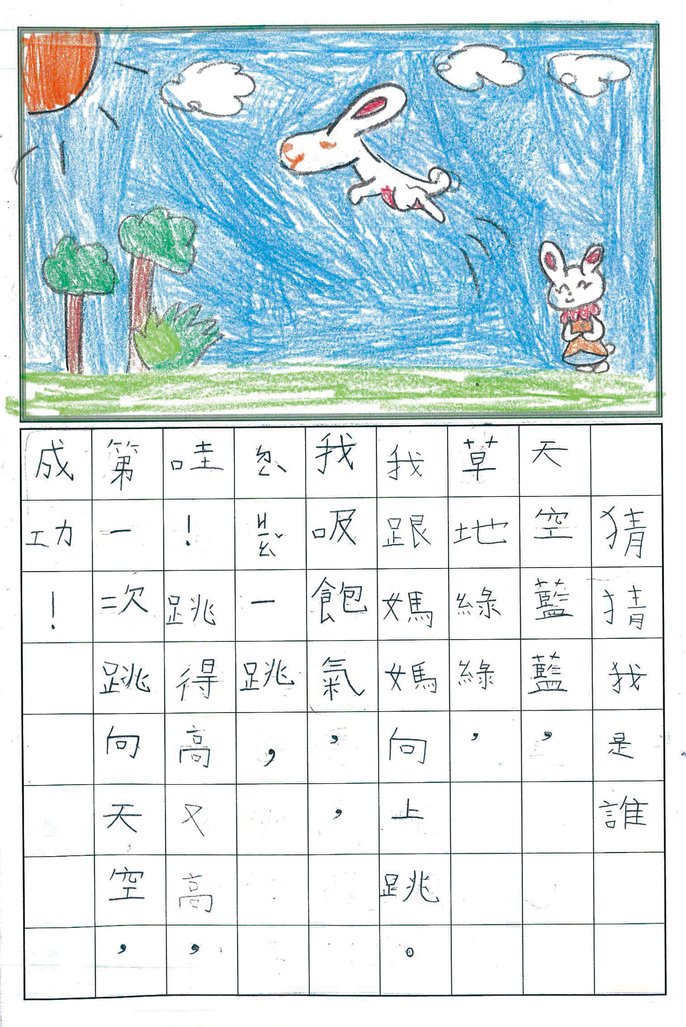 猜猜我是誰
天空藍藍，
草地綠綠，
我跟媽媽向上跳。
我吸飽氣，，
一跳，
哇！跳得高又高，
第一次跳向天空，
成功！